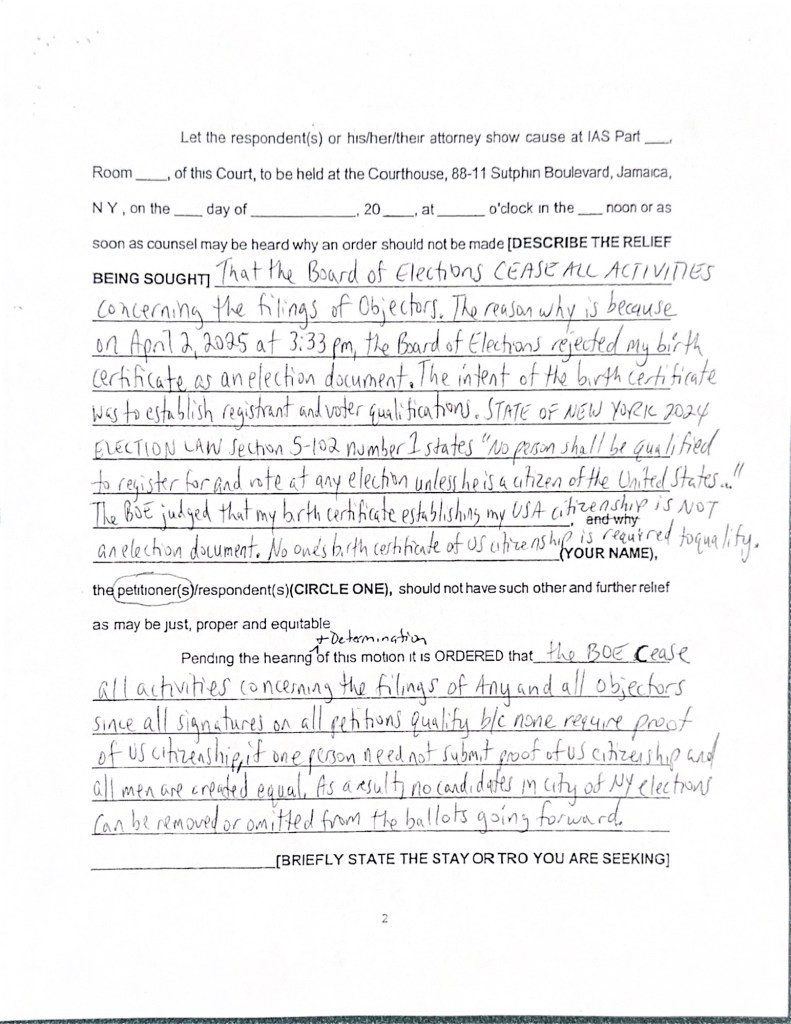 Let the respondent(s) or his/her/their attorney show cause at IAS Part ___,
Room ____, of this Court, to be held at the Courthouse, 88-11 Sutphin Boulevard, Jamaica,
N Y , on the ___ day of ___________, 20 ____, at _____ o'clock in the ___ noon or as
soon as counsel may be heard why an order should not be made [DESCRIBE THE RELIEF
BEING SOUGHT] That the Board of Elections CEASE ALL ACTIVITIES
concerning the filings of Objectors. The reason why is because
on April 2, 2025 at 3:33 pm, the Board of Elections rejected my birth
certificate as an election document. The intent of the birth certificate
was to establish registrant and voter qualifications. STATE OF NEW YORK 2024
ELECTION LAW Section 5-102 number 1 states "No person shall be qualified
to register for and vote at any election unless he is a citizen of the United States..."
The BOE judged that my birth certificate establishing my USA citizenship is NOT
, and why
an election document. No one's birth certificate of US citizenship is required to qualify.
(YOUR NAME),
the petitioner(s)/respondent(s)(CIRCLE ONE), should not have such other and further relief
as may be just, proper and equitable
+ Determination
Pending the hearing of this motion it is ORDERED that the BOE Cease
all activities concerning the filings of Any and all Objectors
since all signatures on all petitions qualify b/c none require proof
of US citizenship, if one person need not submit proof of US citizenship and
all men are created equal. As a result, no candidates in city of NY elections
can be removed or omitted from the ballots going forward.
[BRIEFLY STATE THE STAY OR TRO YOU ARE SEEKING]
2